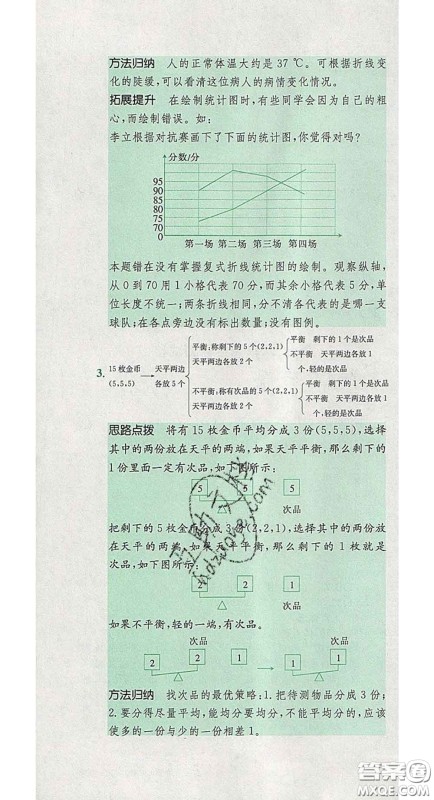 方法归纳 人的正常体温大约是 37 ℃。可根据折线变
化的陡缓,可以看清这位病人的病情变化情况。
拓展提升 在绘制统计图时,有些同学会因为自己的粗
心,而绘制错误。如:
李立根据对抗赛画下了下面的统计图,你觉得对吗?
分数/分
95
90
85
80
75
70
0
第一场 第二场 第三场 第四场
本题错在没有掌握复式折线统计图的绘制。观察纵轴,
从 0 到 70 用 1 小格代表 70 分,而其余小格代表 5 分,单
位长度不统一;两条折线相同,分不清各代表的是哪一支
球队;在各点旁边没有标出数量;没有图例。
3.
15 枚金币
(5,5,5)
天平两边
各放 5 个
平衡:称剩下的 5 个(2,2,1)
天平两边各放 2 个
平衡 剩下的 1 个是次品
不平衡 天平两边各放
1 个,轻的是次品
不平衡:称有次品的 5 个(2,2,1)
天平两边各放 2 个
平衡 剩下的 1 个是次品
不平衡 天平两边各放
1 个,轻的是次品
思路点拨 将有 15 枚金币平均分成 3 份(5,5,5),选择
其中的两份放在天平的两端,如果天平平衡,那么剩下的
1 份里面一定有次品,如下图所示:
5 5 5
次品
把剩下的 5 枚金币分成 3 份(2,2,1),选择其中的两份放
在天平的两端,如果天平平衡,那么剩下的 1 枚就是
次品,如下图所示:
2 2 1
次品
如果不平衡,轻的一端,有次品。
次品 次品
2 2 1 1
方法归纳 找次品的最优策略:1. 把待测物品分成 3 份;
2. 要分得尽量平均,能均分要均分,不能平均分的,应该
使多的一份与少的一份相差 1。
答案圈
MXQE.COM